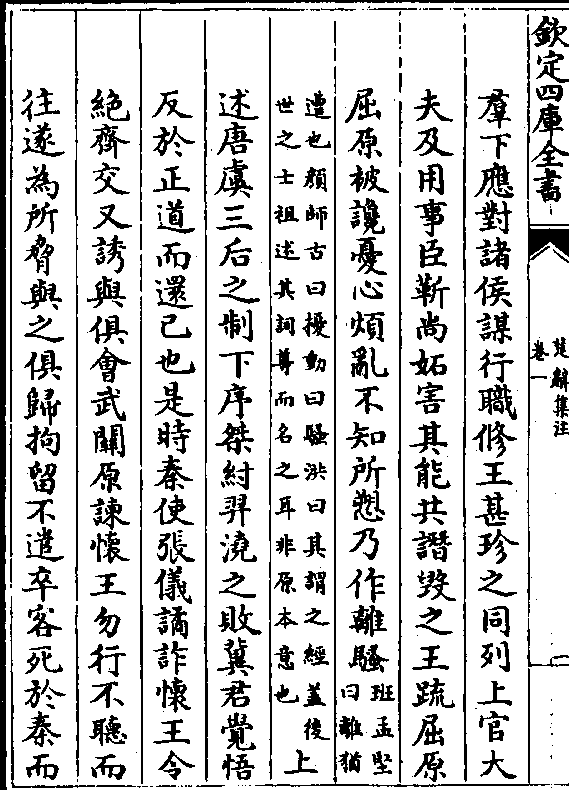 欽定四庫全書
楚辭集注
卷一
羣下應對諸侯謀行職修王甚珍之同列上官大
夫及用事臣靳尚妬害其能共譖毀之王疏屈原
屈原被讒憂心煩亂不知所愬乃作離騷班孟堅曰離猶
遭也顔師古曰擾動曰騷洪曰其謂之經蓋後世之士祖述其詞尊而名之耳非原本意也上
述唐虞三后之制下序桀紂羿澆之敗冀君覺悟
反於正道而還己也是時秦使張儀譎詐懷王令
絕齊交又誘與俱會武關原諫懷王勿行不聽而
往遂為所脅與之俱歸拘留不遣卒客死於秦而